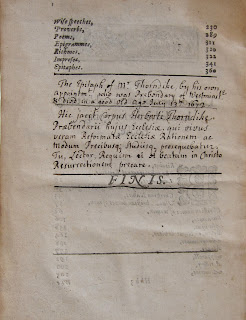 Wise speeches, 230
Proverbs, 289
Poems, 311
Epigrammes, 321
Rithmes, 322
Impreses, 341
Epitaphes. 360
The Epitaph of Mr Thorndike, by his own
appointmt who was Prebendary of Westminstr
& died in a good old Age July 13th 1672
Hic jacet Corpus Herberti Thorndike
Præbendarii hujus Ecclesiæ, qui vivus
veram Reformatæ Ecclesiæ Rationem ac
Modum Precibusq Studiisq prosequebatur.
Tu, Lector, Requiem ei & beatam in Christo
Resurrectionem precare.
FINIS.